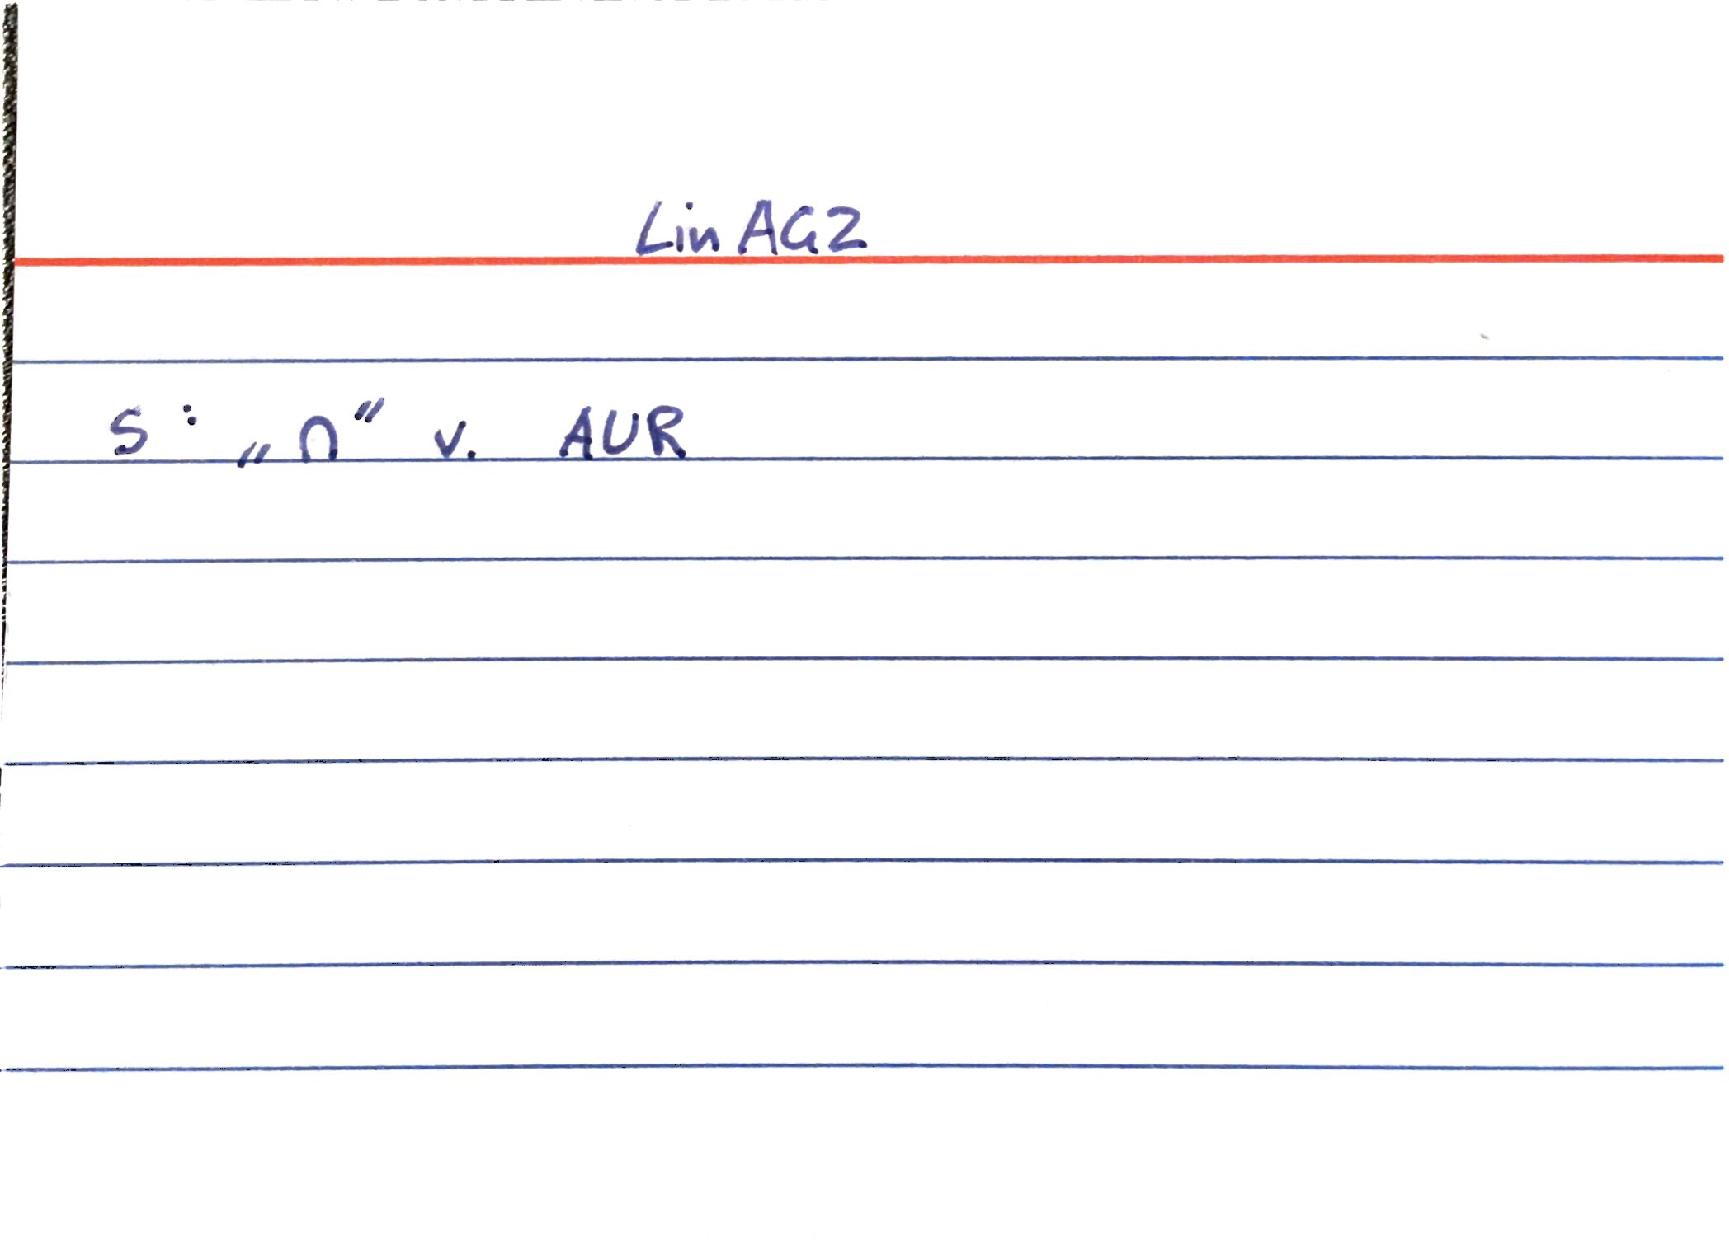 Lin AG2
S: „∩“ v. AUR